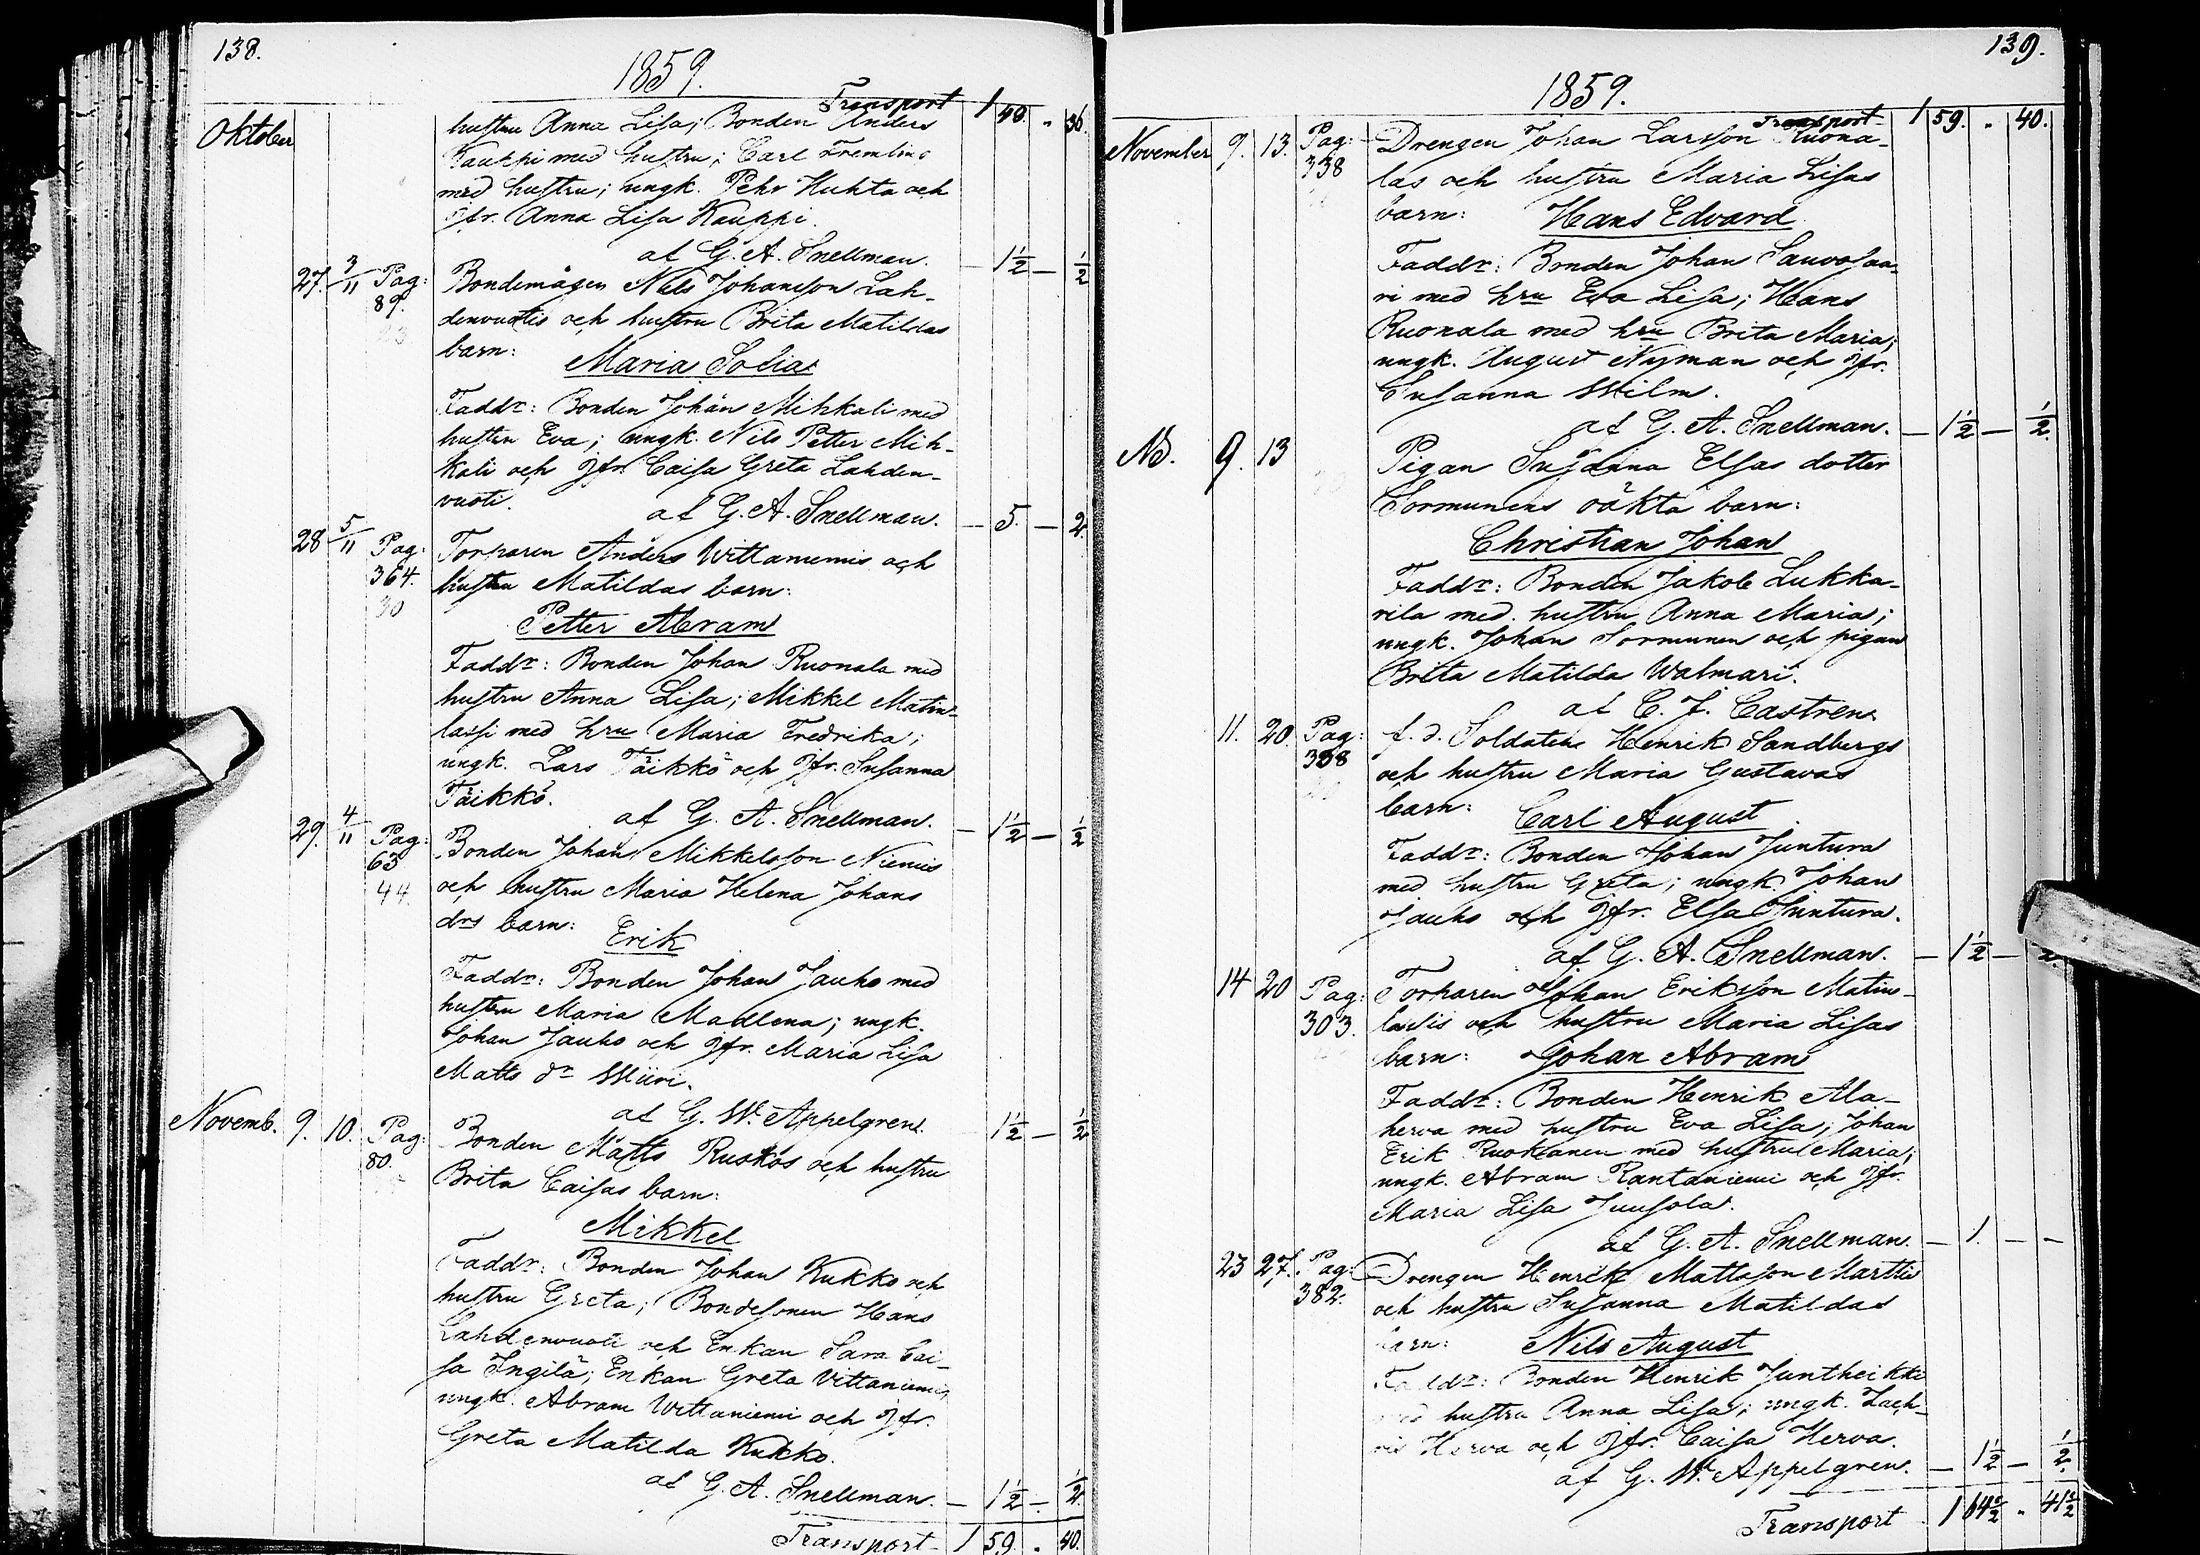 138.
1859.
Transport 1 49. " 36.
Oktober
hustru Anna Lisa; Bonden Anders
Kauppi med hustru; Carl Fremling
med hustru; ungk. Pehr Huhta och
Jfr. Anna Lisa Kauppi.
af G. A. Snellman. — 1½ — ½
27. 3/11 Pag: 89. Bondemågen Nils Johansson Lah-
denvuotis och hustru Brita Matildas
barn:
Maria Sofia
Faddr: Bonden Johan Mihkali med
hustru Eva; ungk. Nils Petter Mih-
kali och Jfr. Caisa Greta Lahden-
vuoti.
af G. A. Snellman. — 5. — 2.
28 5/11 Pag: 364. 30 Torparen Anders Wittaniemis och
hustru Matildas barn:
Petter Abram
Faddr: Bonden Johan Ruonala med
hustru Anna Lisa; Mikkel Matin-
lassi med hru Maria Fredrika;
ungk. Lars Täikkö och Jfr. Susanna
Täikkö.
af G. A. Snellman. — 1½ — ½
29. 4/11 Pag: 63 44. Bonden Johan Mikkelsson Niemis
och hustru Maria Helena Johans
drs barn:
Erik
Faddr: Bonden Johan Jauho med
hustru Maria Madlena; ungk.
Johan Jauho och Jfr. Maria Lisa
Matts dr Wiiri.
af G. W. Appelgren. 1½ — ½
Novemb. 9. 10. Pag: 80. Bonden Matts Ruokos och hustru
Brita Caisas barn:
Mikkel
Faddr: Bonden Johan Kukko och
hustru Greta; Bondesonen Hans
Lahdenvuoti och Enkan Sara Cai-
sa Ingilä; Enkan Greta Vittaniemi;
ungk. Abram Wittaniemi och Jfr.
Greta Matilda Kukko.
af G. A. Snellman. — 1½ — ½
Transport 1 59. " 40.
139.
1859.
Transport 1 59. " 40.
November 9. 13. Pag: 338 Drengen Johan Larsson Ruona-
las och hustru Maria Lisas
barn: Hans Edvard
Faddr: Bonden Johan Sauvosaa-
ri med hru Eva Lisa; Hans
Ruonala med hru Brita Maria;
ungk. August Nyman och Jfr.
Susanna Wilm.
af G. A. Snellman. — 1½ — ½.
Nb. 9. 13 Pigan Susanna Elsas dotter
Sormunens oäkta barn:
Christian Johan
Faddr: Bonden Jakob Lukka-
rila med hustru Anna Maria;
ungk. Johan Sormunen och pigan
Brita Matilda Walmari.
af C. J. Castren
11. 20. Pag: 338 f. d. Soldaten Henrik Sandbergs
och hustru Maria Gustavas
barn: Carl August
Faddr: Bonden Johan Juntura
med hustru Greta; ungk. Johan
Jauho och Jfr. Elsa Juntura.
af G. A. Snellman. — 1½ —
14 20 Pag: 303. Torparen Johan Eriksson Matin-
lassis och hustru Maria Lisas
barn: Johan Abram
Faddr: Bonden Henrik Ala-
herva med hustru Eva Lisa; Johan
Erik Ruokanen med hustru Maria;
ungk. Abram Rantaniemi och Jfr.
Maria Lisa Juusola.
af G. A. Snellman. — 1. — —
23 27. Pag: 382. Drengen Henrik Mattsson Marttis
och hustru Susanna Matildas
barn: Nils August
Faddr: Bonden Henrik Juntheikki
med hustru Anna Lisa; ungk. Zach-
ris Herva och Jfr. Caisa Herva.
af G. W. Appelgren. — 1½ — ½.
Transport 1 64½ " 41½